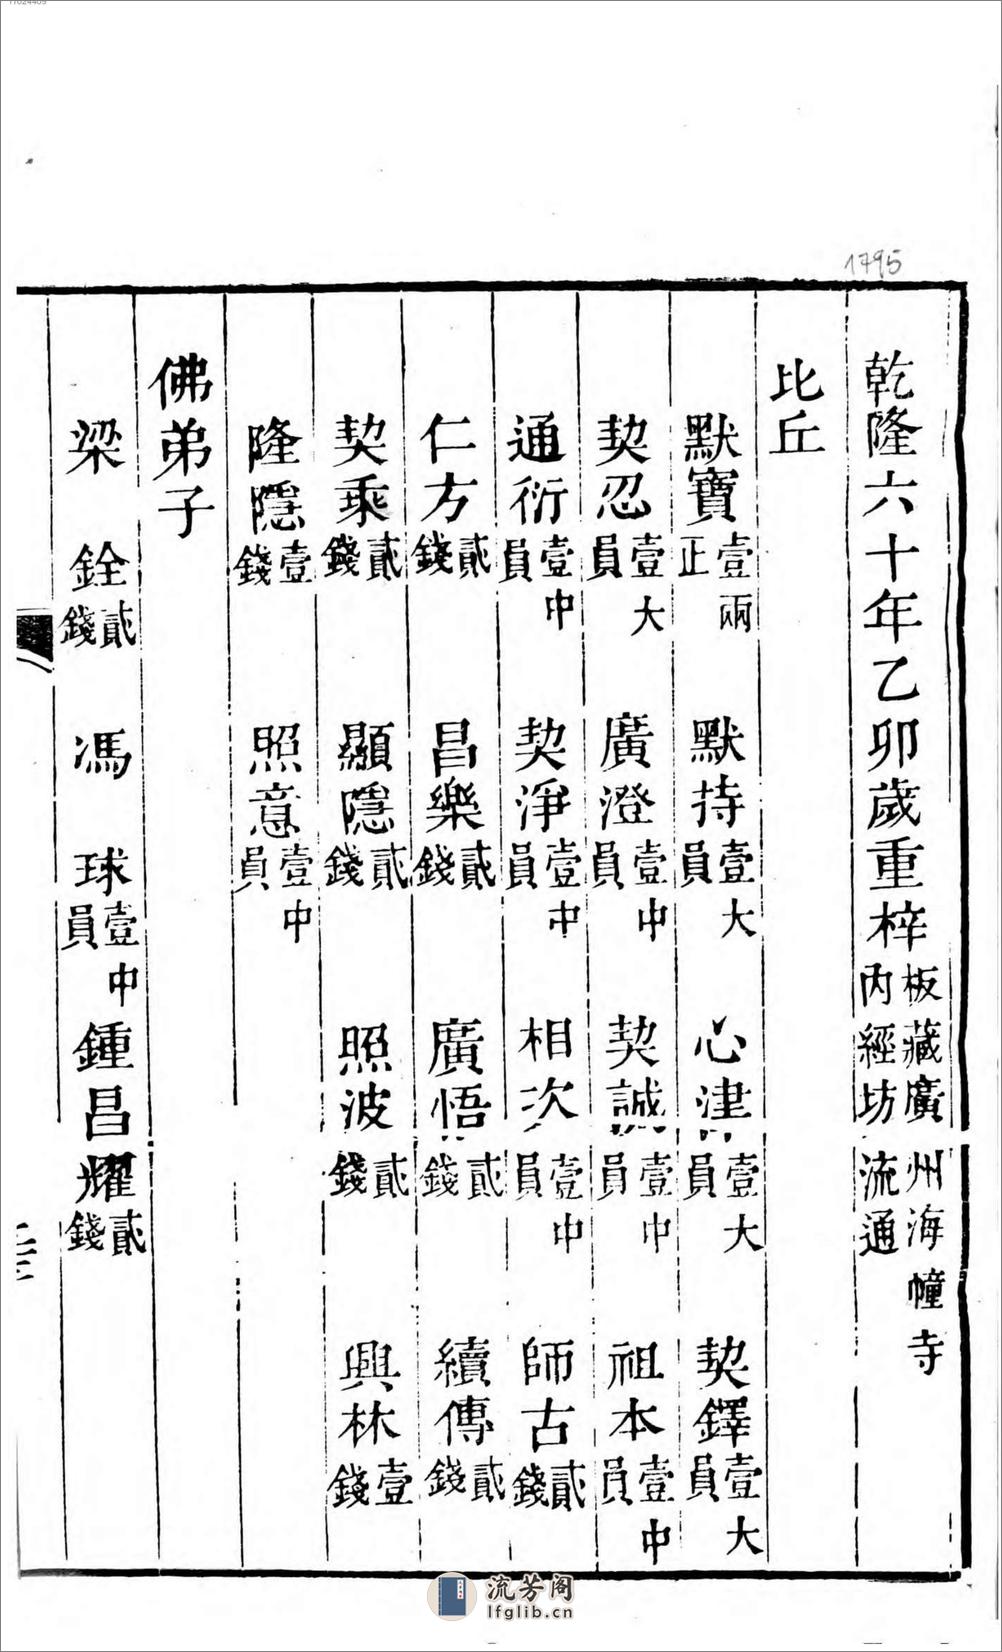 11024409
1795
乾隆六十年乙卯歲重梓 板藏廣州海幢寺内經坊流通
比丘
默寶 壹兩正 默持 壹大員 心津 壹大員 契鐸 壹大員
契忍 壹大員 廣澄 壹中員 契誠 壹中員 祖本 壹中員
通衍 壹中員 契淨 壹中員 相次 壹中員 師古 貳錢
仁方 貳錢 昌樂 貳錢 廣悟 貳錢 續傳 貳錢
契乘 貳錢 顯隱 貳錢 照波 貳錢 興林 壹錢
隆隱 壹錢 照意 壹中員
佛弟子
梁銓 貳錢 馮球 壹中員 鍾昌耀 貳錢
流芳阁
lfglib.cn